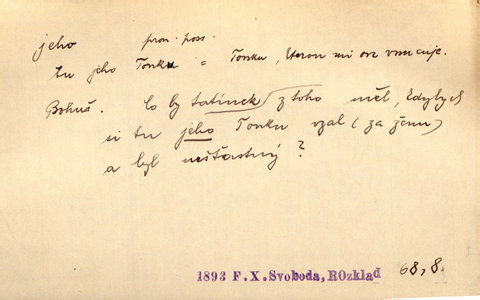 jeho pron. poss.
tu jeho Tonku = Tonku, kterou mi on vnucuje.
Bohuš. Co by tatínek z toho měl, kdybych
si tu jeho Tonku vzal (za ženu)
a byl nešťastný?
1893 F.X.Svoboda, ROzklad 68,8.